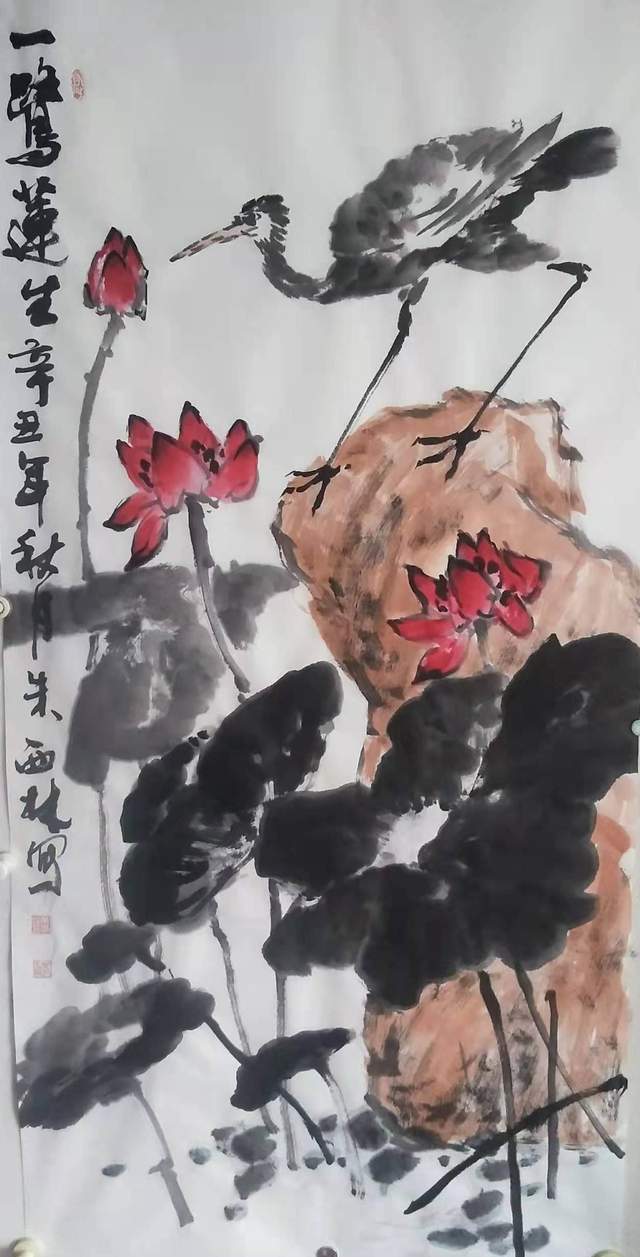 一鹭蓮生辛丑年秋月朱西林写